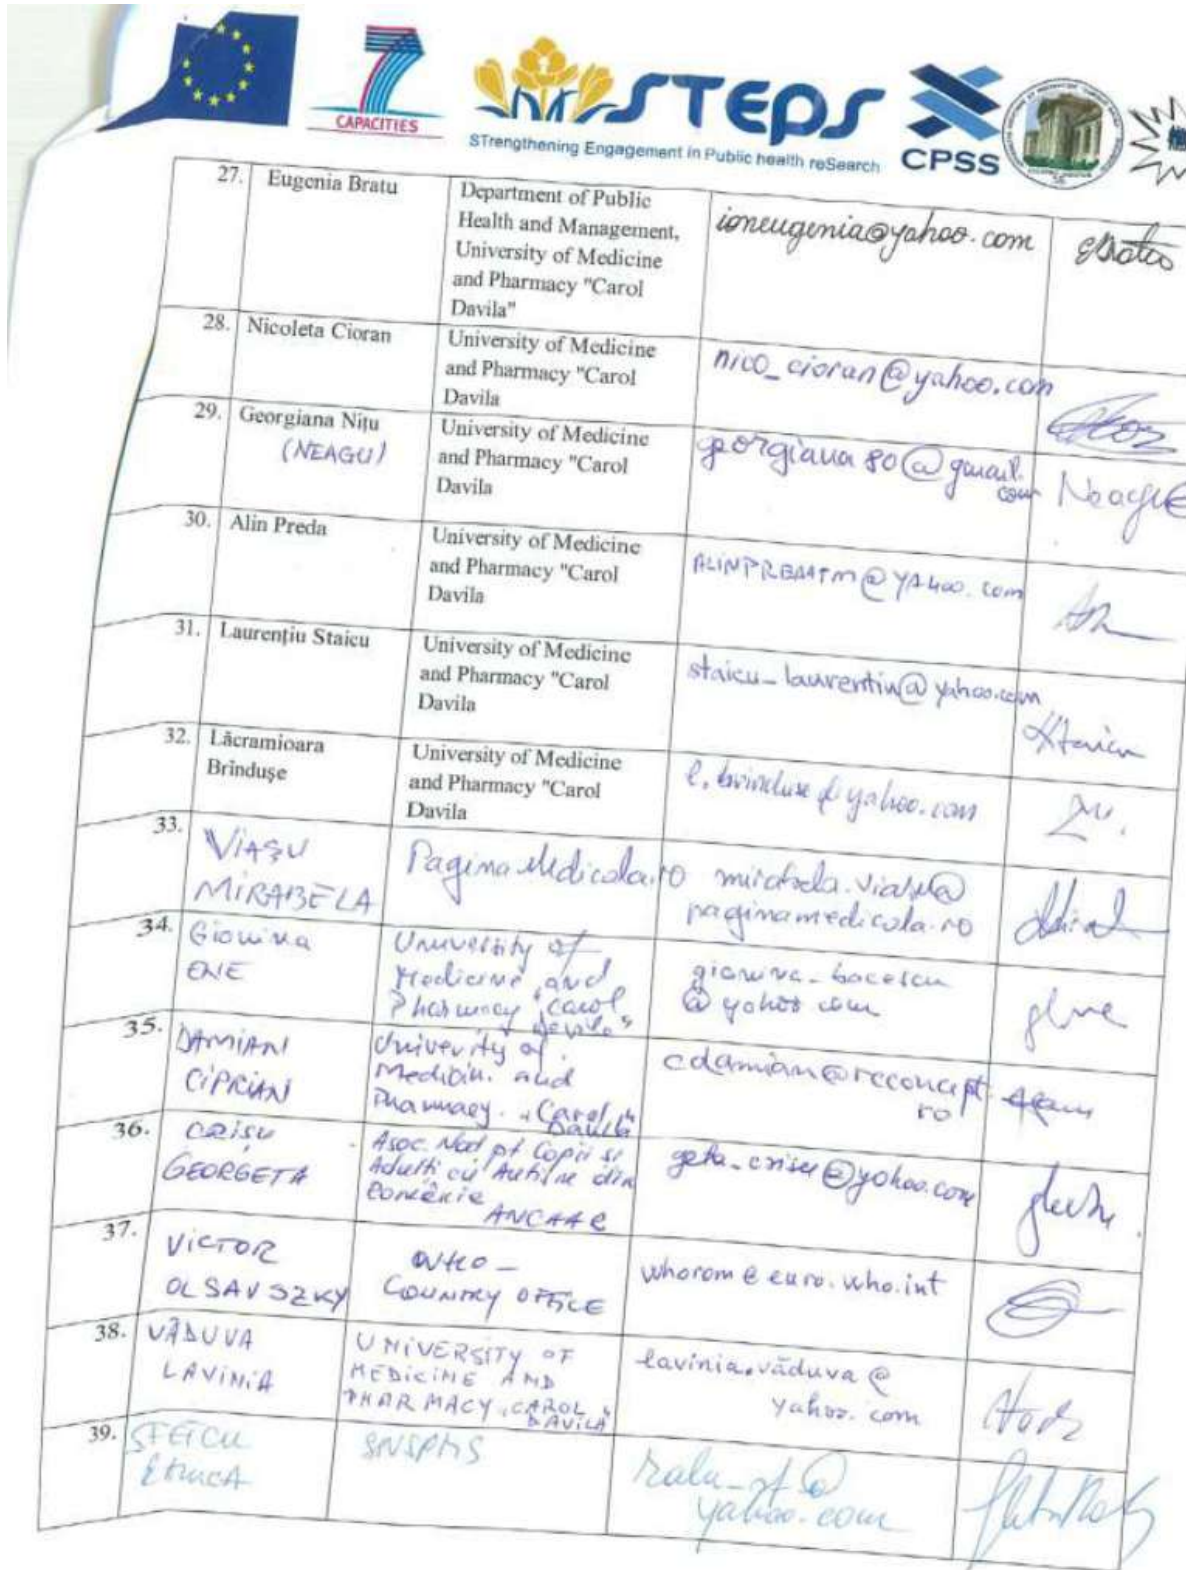 7
CAPACITIES
STEPS
STrengthening Engagement in Public health reSearch
CPSS
27. Eugenia Bratu
Department of Public
Health and Management,
University of Medicine
and Pharmacy "Carol
Davila"
ioneugenia@yahoo.com
28. Nicoleta Cioran
University of Medicine
and Pharmacy "Carol
Davila
nico_cioran@yahoo.com
29. Georgiana Nițu
(NEAGU)
University of Medicine
and Pharmacy "Carol
Davila
georgiana80@gmail.
com
Neagu
30. Alin Preda
University of Medicine
and Pharmacy "Carol
Davila
31. Laurențiu Staicu
University of Medicine
and Pharmacy "Carol
Davila
staicu_laurentiu@yahoo.com
32. Lăcramioara
Brîndușe
University of Medicine
and Pharmacy "Carol
Davila
33. VIAȘU
MIRABELA
PaginaMedicala.ro
paginamedicala.ro
34. Gionina
ENE
University of
Medicine and
Pharmacy "Carol
Davila"
gionina_bacescu
@yahoo.com
35. DAMIAN
CIPRIAN
University of
Medicin. and
Pharmacy. "Carol
Davila"
cdamian@reconcept.
ro
36. CRIȘU
GEORGETA
Asoc. Naț pt Copii și
Adulți cu Autism din
România
ANCAAR
geta_crisu@yahoo.com
37. VICTOR
OLSAVSZKY
WHO -
COUNTRY OFFICE
whorom@euro.who.int
38. VĂDUVA
LAVINIA
UNIVERSITY OF
MEDICINE AND
PHARMACY "CAROL
DAVILA"
lavinia.văduva@
yahoo.com
39.
SNSPMS
ralu_st@
yahoo.com